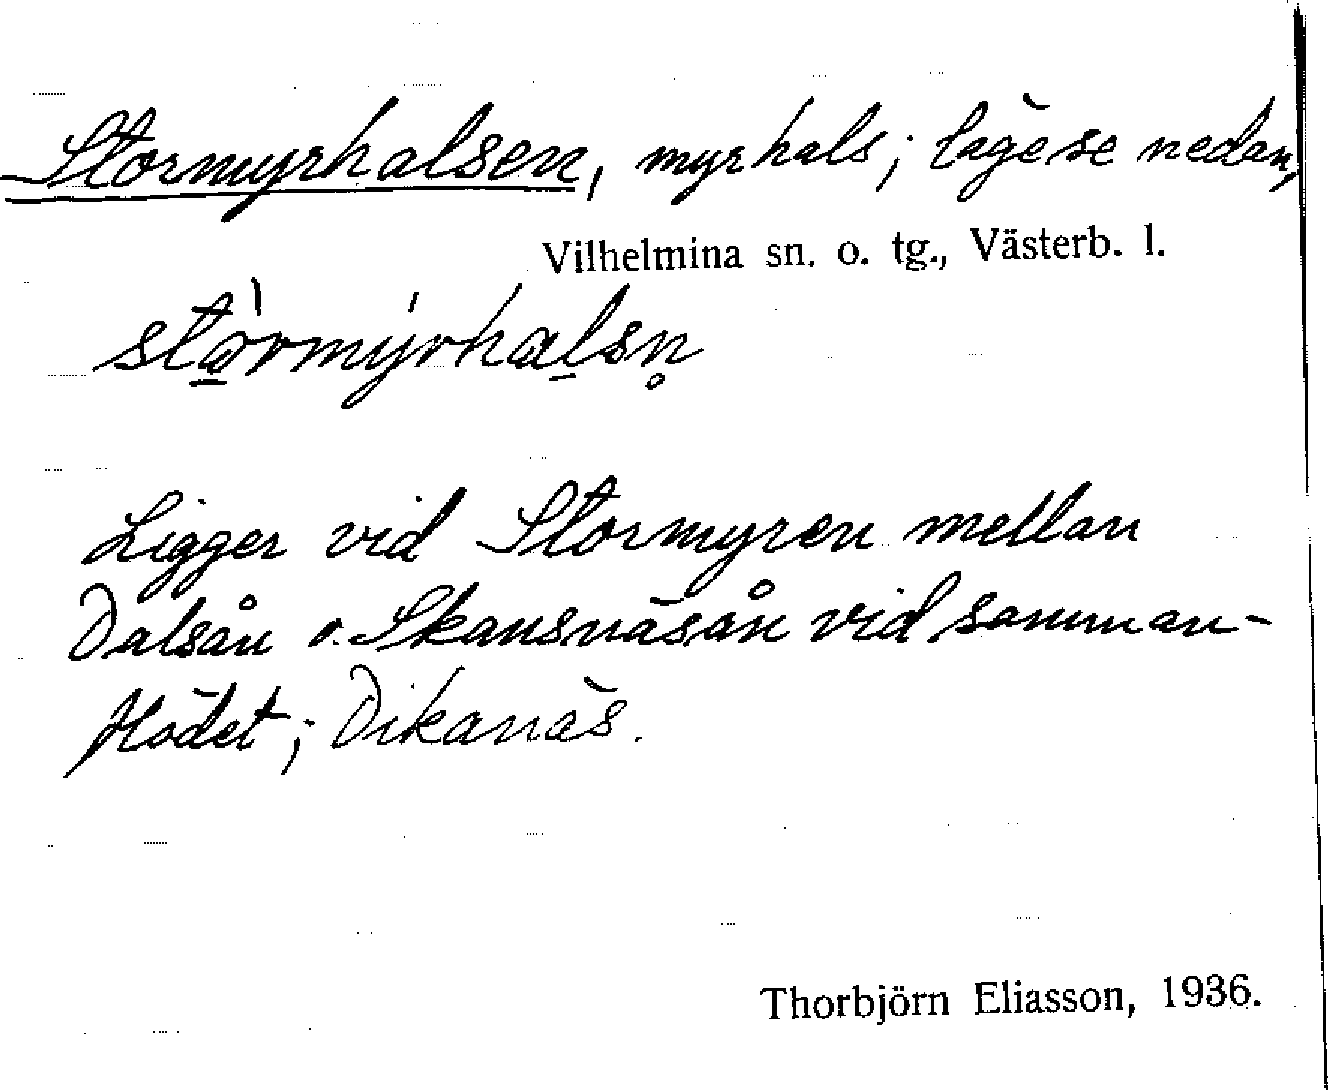 Stormyrhalsen, myrhals; läge se nedan,
Vilhelmina sn. o. tg., Västerb. l.
stòrmýrhalsn̥
Ligger vid Stormyren mellan
Dalsån o. Skansnäsån vid samman-
flödet; Dikanäs.
Thorbjörn Eliasson, 1936.